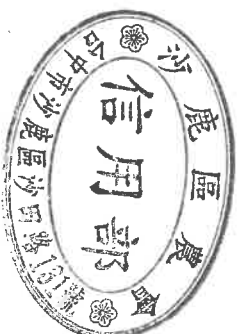 沙鹿區農會
信用部
台中市沙鹿區沙田路